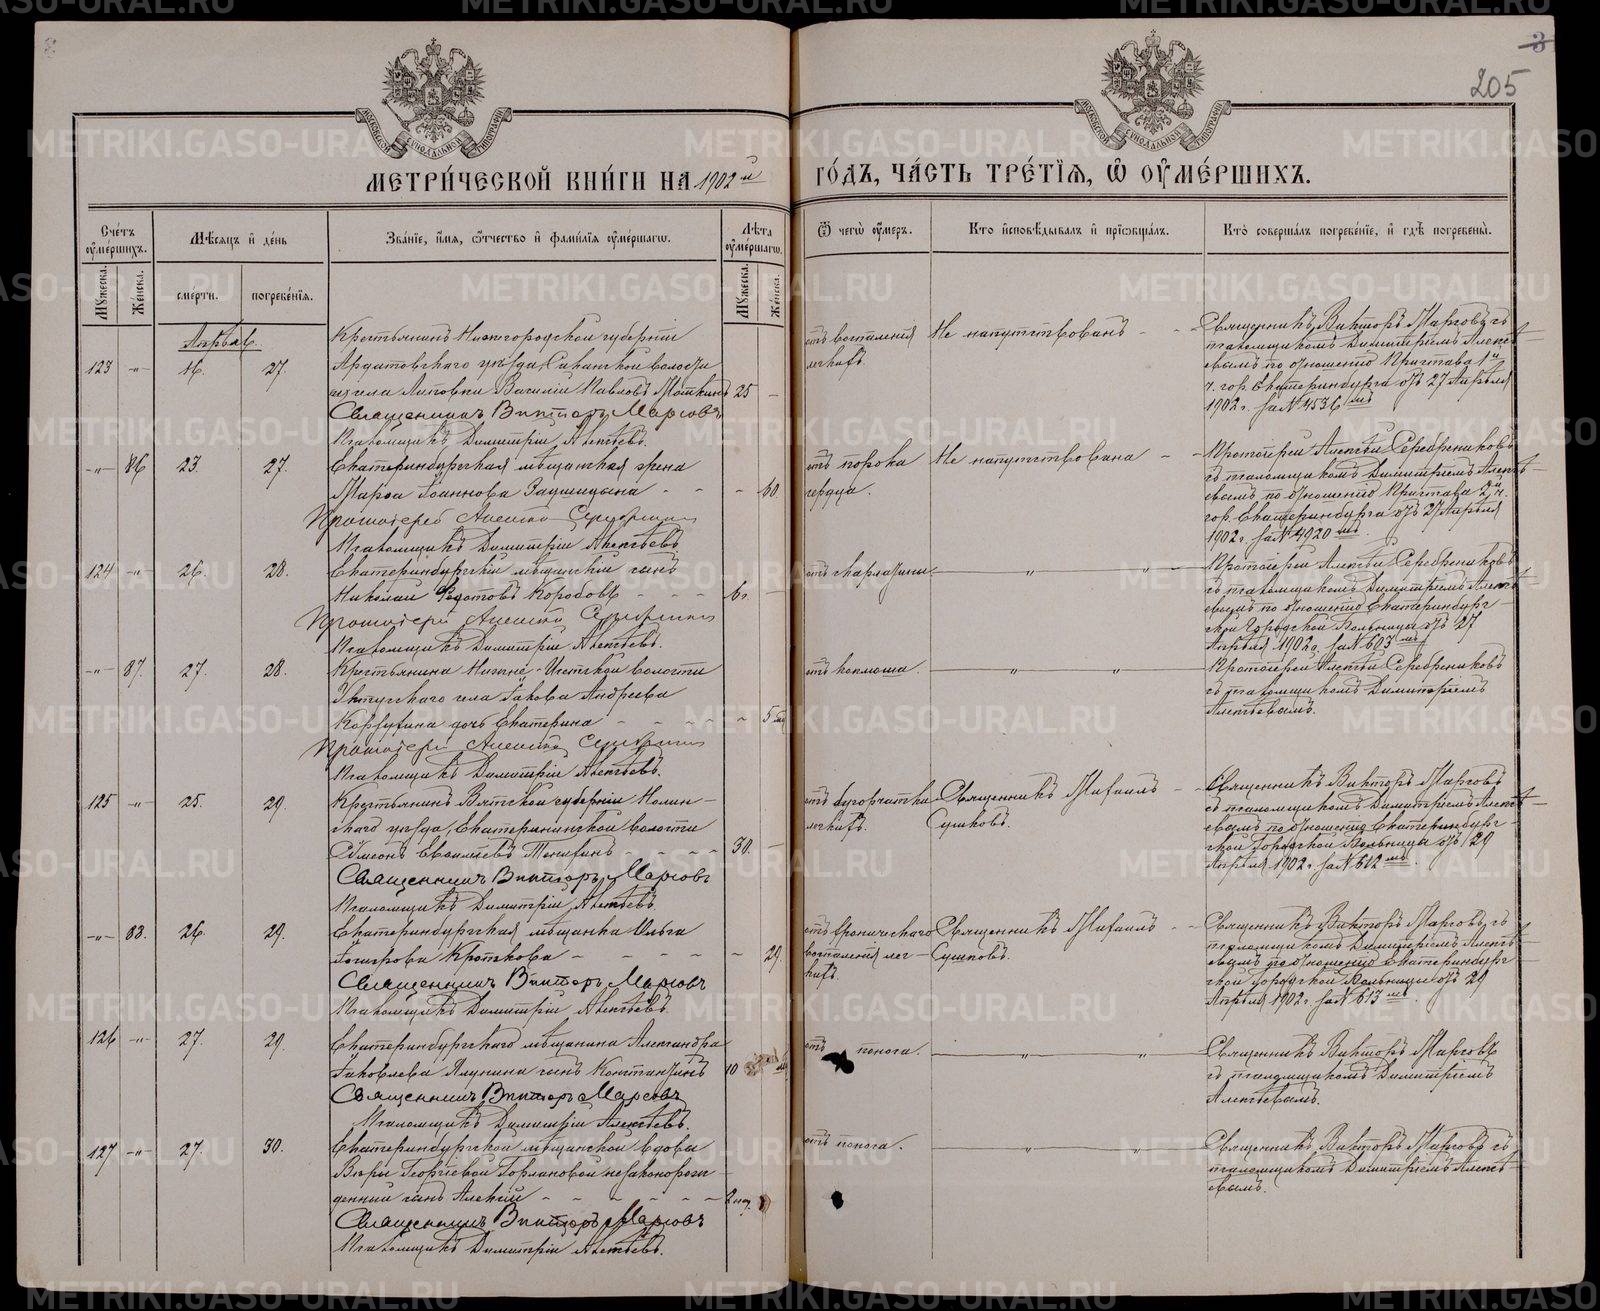 205
МЕТРИ́ЧЕСКОЙ КНИ́ГИ НА 1902й ГО́ДЪ, ЧА́СТЬ ТРЕ́ТІѦ, Ѡ ОУМЕ́РШИХЪ.
Сче́тъ оуме́ршихъ.
Мѣсѧцъ и де́нь
Зва́ніе, и́мѧ, ѻ́тчество и фами́ліѧ оуме́ршагѡ.
Лѣта оуме́ршагѡ.
Ѿ чегѡ̀ оу́меръ.
Кто̀ и҆сповѣ́дывалъ и҆ прїѡбща́лъ.
Кто̀ соверша́лъ погребе́ніе, и҆ гдѣ̀ погребены̀.
Мꙋжеска. Же́нска.
сме́рти. погребе́ніѧ.
Мꙋжеска. Же́нска.
Апрѣль.
123 -"- 16. 27.
Крестьянинъ Нижегородской губерніи
Ардатовскаго уѣзда,
села Липовки Василій Павловъ 25 -
Священникъ Викторъ Марсовъ
Псаломщикъ Димитрій Алексѣевъ.
отъ воспаленія
легкихъ.
Не напутствованъ
Священникъ Викторъ Марсовъ съ
псаломщикомъ Димитріемъ Алексѣ-
евымъ по отношенію Пристава 1й
ч. гор. Екатеринбурга отъ 27 Апрѣля
1902 г. за № 4536 мъ
-"- 86 23. 27.
Екатеринбургская мѣщанская жена
Марѳа Іоаннова - 60.
Протоіерей Алексій Серебрениковъ
Псаломщикъ Димитрій Алексѣевъ
отъ порока
сердца.
Не напутствована
Протоіерей Алексѣй Серебрениковъ
съ псаломщикомъ Димитріемъ Алексѣ-
евымъ по отношенію Пристава 2й ч.
гор. Екатеринбурга отъ 27 Апрѣля
1902 г. за № 4920 мъ.
124 -"- 26. 28.
Екатеринбургскій мѣщанскій сынъ
Николай Коробовъ 6 г. -
Протоіерей Алексій Серебрениковъ
Псаломщикъ Димитрій Алексѣевъ.
отъ скарлатины
Протоіерей Алексѣй Серебрениковъ
съ псаломщикомъ Димитріемъ Алексѣ-
евымъ по отношенію Екатеринбург-
ской Городской Больницы отъ 27
Апрѣля 1902 г. за № 603 мъ
-"- 87. 27. 28.
Крестьянина Нижне-Исетской волости
Уктусскаго села Іакова Андреева
дочь Екатерина - 5 мѣ
Протоіерей Алексій Серебрениковъ
Псаломщикъ Димитрій Алексѣевъ.
отъ коклюша.
Протоіерей Алексѣй Серебрениковъ
съ псаломщикомъ Димитріемъ
Алексѣевымъ.
125 -"- 25. 29.
Крестьянинъ Вятской губерніи Нолин-
скаго уѣзда, Екатерининской волости
Сѵмеонъ 30. -
Священникъ Викторъ Марсовъ
Псаломщикъ Димитрій Алексѣевъ.
отъ бугорчатки
легкихъ.
Священникъ Михаилъ
Сушковъ.
Священникъ Викторъ Марсовъ
съ псаломщикомъ Димитріемъ Алексѣ-
евымъ по отношенію Екатеринбург-
ской Городской Больницы отъ 29
Апрѣля 1902 г. за № 612 мъ.
-"- 88. 26. 29.
Екатеринбургская мѣщанка Ольга
Кроткова - 29.
Священникъ Викторъ Марсовъ
Псаломщикъ Димитрій Алексѣевъ.
отъ хроническаго
воспаленія лег-
кихъ.
Священникъ Михаилъ
Сушковъ.
Священникъ Викторъ Марсовъ съ
псаломщикомъ Димитріемъ Алексѣ-
евымъ по отношенію Екатеринбург-
ской Городской Больницы отъ 29
Апрѣля 1902 г. за № 613 мъ.
126 -"- 27. 29.
Екатеринбургскаго мѣщанина Александра
Іаковлева сынъ Константинъ 10
Священникъ Викторъ Марсовъ
Псаломщикъ Димитрій Алексѣевъ.
отъ поноса.
Священникъ Викторъ Марсовъ
съ псаломщикомъ Димитріемъ
Алексѣевымъ.
127 -"- 27. 30.
Екатеринбургской мѣщанской вдовы
Вѣры Георгіевой Горлановой незаконорож-
денный сынъ Алексій 2 нед.
Священникъ Викторъ Марсовъ
Псаломщикъ Димитрій Алексѣевъ.
отъ поноса.
Священникъ Викторъ Марсовъ съ
псаломщикомъ Димитріемъ Алексѣ-
евымъ.
METRIKI.GASO-URAL.RU